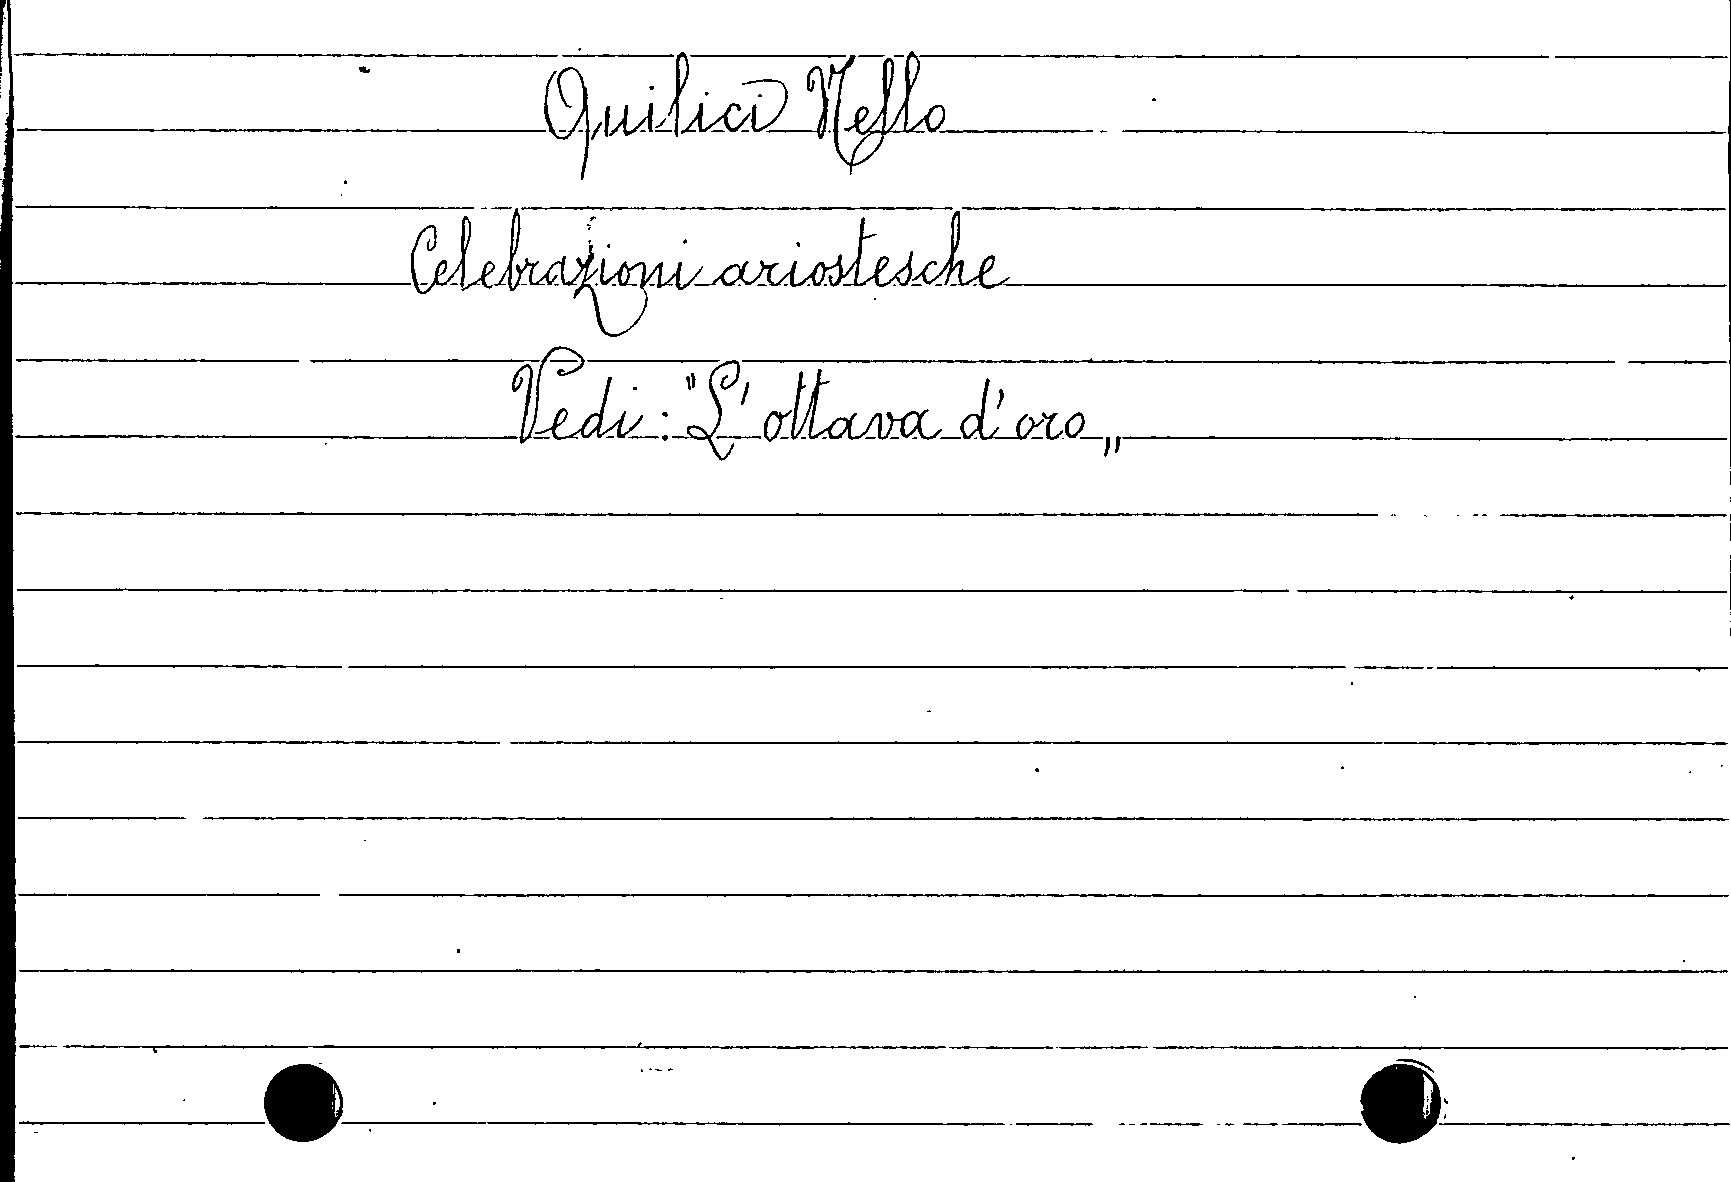 Quilici Nello
Celebrazioni ariostesche
Vedi: "L'ottava d'oro„